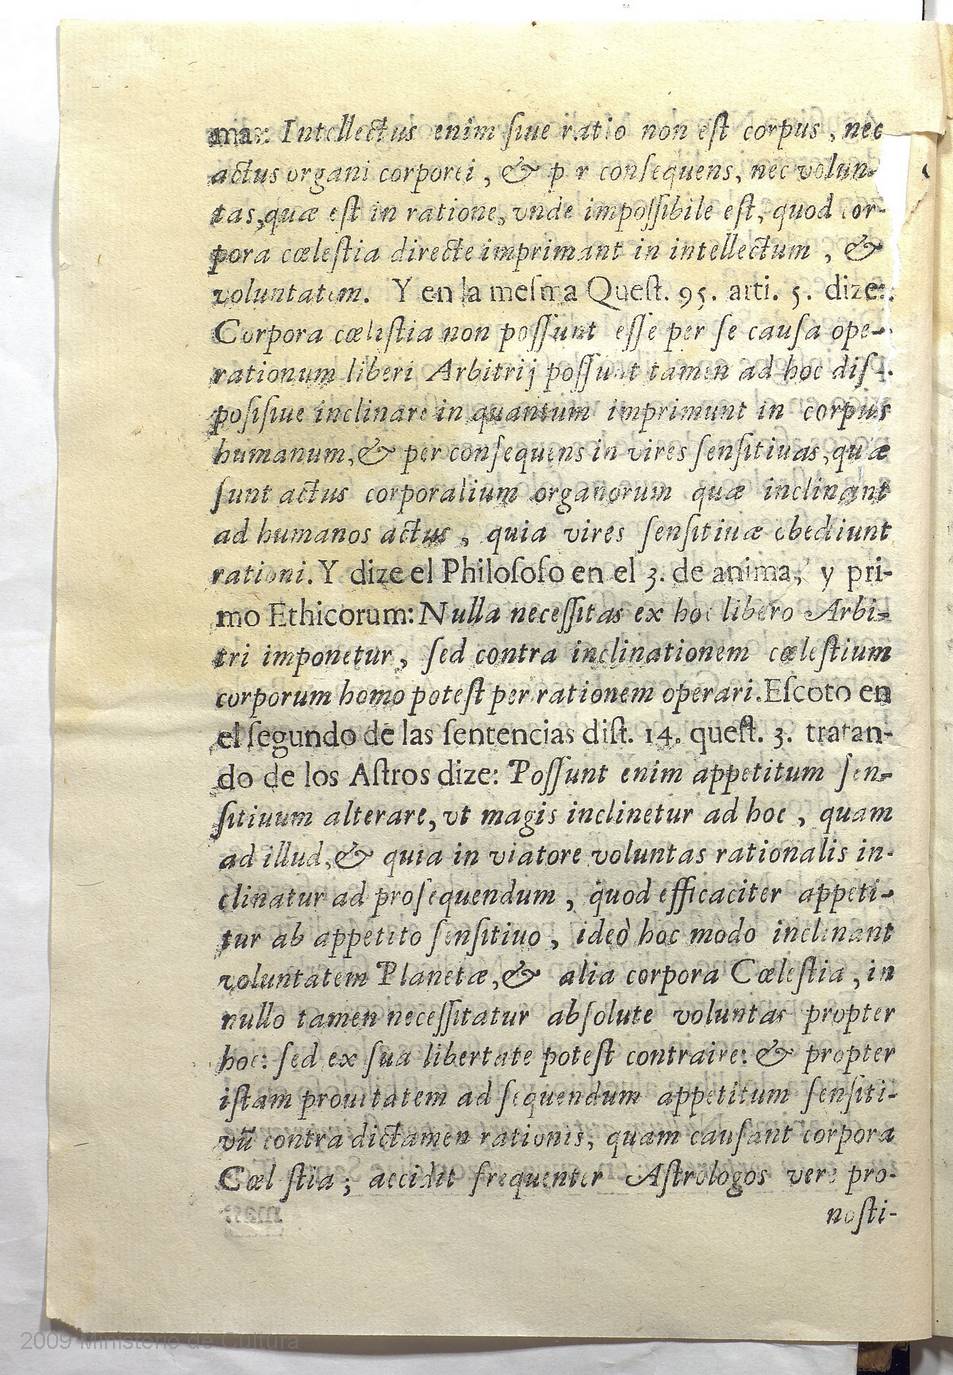 mas: Intellectus enim ſiue ratio non eſt corpus, nec
actus organi corporei, & p r conſequens, nec volun-
tas, quæ eſt in ratione, vnde impoſſibile eſt, quod cor-
pora cœleſtia directe imprimant in intellectum, &
voluntatem. Y en la meſma Queſt. 95. arti. 5. dize:
Corpora cœleſtia non poſſunt eſſe per ſe cauſa ope-
rationum liberi Arbitrij poſſunt tamen ad hoc diſ-
poſiſiue inclinare in quantum imprimunt in corpus
humanum, & per conſequens in vires ſenſitiuas, quæ
ſunt actus corporalium organorum quæ inclinant
ad humanos actus, quia vires ſenſitiuæ obediunt
rationi. Y dize el Philoſofo en el 3. de anima, y pri-
mo Ethicorum: Nulla neceſſitas ex hoc libero Arbi-
tri imponetur, ſed contra inclinationem cœleſtium
corporum homo poteſt per rationem operari. Eſcoto en
el ſegundo de las ſentencias diſt. 14. queſt. 3. tratan-
do de los Aſtros dize: Poſſunt enim appetitum ſen-
ſitiuum alterare, vt magis inclinetur ad hoc, quam
ad illud, & quia in viatore voluntas rationalis in-
clinatur ad proſequendum, quod efficaciter appeti-
tur ab appetito ſenſitiuo, ideò hoc modo inclinant
voluntatem Planetæ, & alia corpora Cœleſtia, in
nullo tamen neceſſitatur abſolute voluntas propter
hoc: ſed ex ſua libertate poteſt contraire: & propter
iſtam prouitatem ad ſequendum appetitum ſenſiti-
vũ contra dictamen rationis, quam cauſant corpora
Cœl ſtia; accidit frequenter Aſtrologos vere pro-
noſti-
2009 Ministerio de Cultura